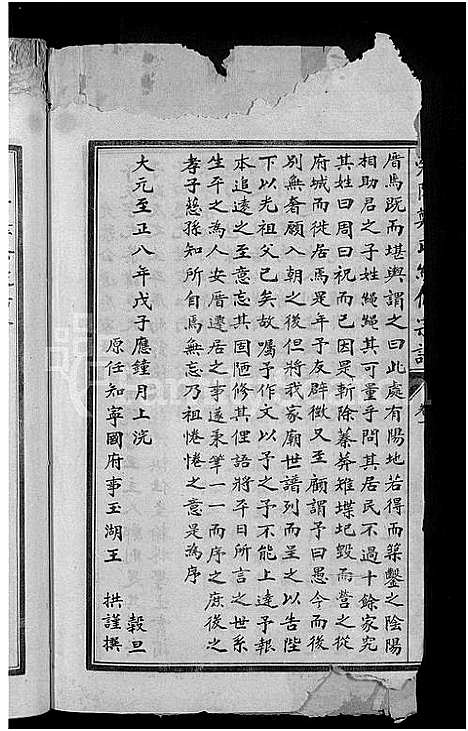 厝焉既而堪輿謂之曰此處有陽地若得而築鑿之陰陽
相助君之子姓繩繩其可量乎問其居民不過十餘家究
其姓曰周曰祝而已因是斬除蓁莽雉堞圮毀而營之從
府城而徙居焉是年予友辟徵又至顧謂予曰愚今而後
別無奢願入朝之後但將我家廟世譜列而呈之以告陛
下以光祖父已矣故囑予作文以予之予不能上達予報
本追遠之至意忘其固陋修其俚語將平日所言之世系
生平之為人安厝遷居之事遂秉筆一一而序之庶後之
孝子慈孫知所自焉無忘乃祖惓惓之意是為序
大元至正八年戊子應鐘月上浣 穀旦
原任知寧國府事玉湖王 拱謹撰